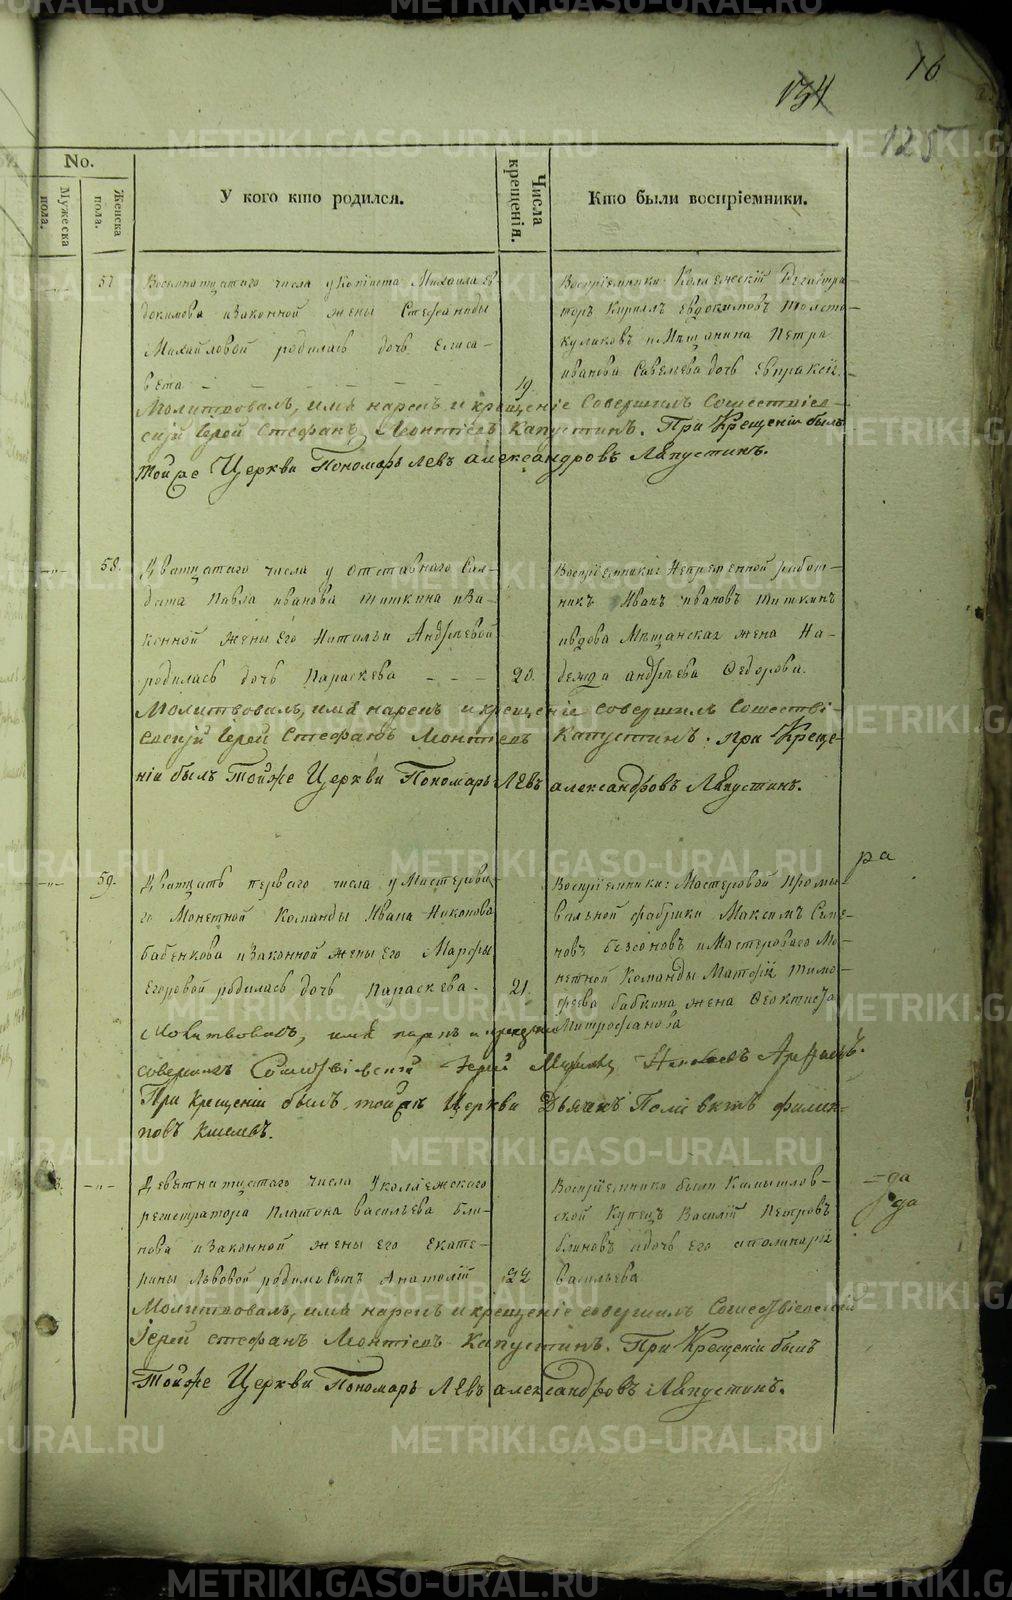 16
134
125
No.
Мужеска пола.
Женска пола.
У кого кто родился.
Числа крещенія.
Кто были воспріемники.
57
Восемнатцатаго числа у Копіиста Михаила Ев
докимова изаконной жены Стефаниды
Михайловой родилась дочь Елиса-
вета
19.
Воспріемники: Коллежскій Регистра-
торъ Кириллъ Евдокимовъ Толсто-
куликовъ и Мѣщанина Петра
иванова Савельева дочь Евпраксія.
Молитвовалъ, имя нарекъ и крещеніе Совершилъ Сошествіев-
скій Іерей Стефанъ Леонтіевъ Капустинъ. При Крещеніи былъ
Тойже Церкви Пономарь Левъ александровъ Ляпустинъ.
58.
Дватцатаго числа у отставнаго Сол-
дата Павла иванова Шишкина иЗа-
конной жены Его Натальи Андреевой
родилась дочь Параскева
20.
Воспріемники: Непременной работ-
никъ Иванъ ивановъ Шишкинъ
ивдова Мѣщанская жена На-
дежда андреева Ѳедорова.
Молитвовалъ, имя нарекъ и крещеніе совершилъ Сошестві-
евскій Іерей Стефанъ Леонтіевъ Капустинъ. при Креще-
ніи былъ Тойже Церкви Пономарь Левъ александровъ Ляпустинъ.
ра
59.
Дватцать перваго числа у Мастерова-
го Монетной Команды Ивана Никонова
бабенкова изаконной жены его Марфы
Егоровой родилась дочь Параскева.
21.
Воспріемники: Мастеровой Промы-
вальной фабрики Максимъ Семе-
новъ безсоновъ и Мастероваго Мо-
нетной Команды Матфія Тимо-
феева бабкина жена Ѳеоктиста
Митрофанова
Молитвовалъ, имя нарекъ и крещеніе
совершилъ Сошествіевскій Іерей
При Крещеніи былъ тойже Церкви Дьячекъ Поліевктъ филип-
повъ
Деветнатцатаго числа У коллежскаго
регистратора Платона васильева бли-
нова изаконной жены его Екате-
рины Львовой родился Сынъ Анатолій
22
Воспріемники были Камышлов-
ской Купецъ Василій Петровъ
блиновъ идочь его аполинарія
васильева
да
да
Молитвовалъ, имя нарекъ и крещеніе совершилъ Сошествіевскій
Іерей Стефанъ Леонтіевъ Капустинъ. При Крещеніи былъ
Тойже Церкви Пономарь Левъ александровъ Ляпустинъ.
METRIKI.GASO-URAL.RU